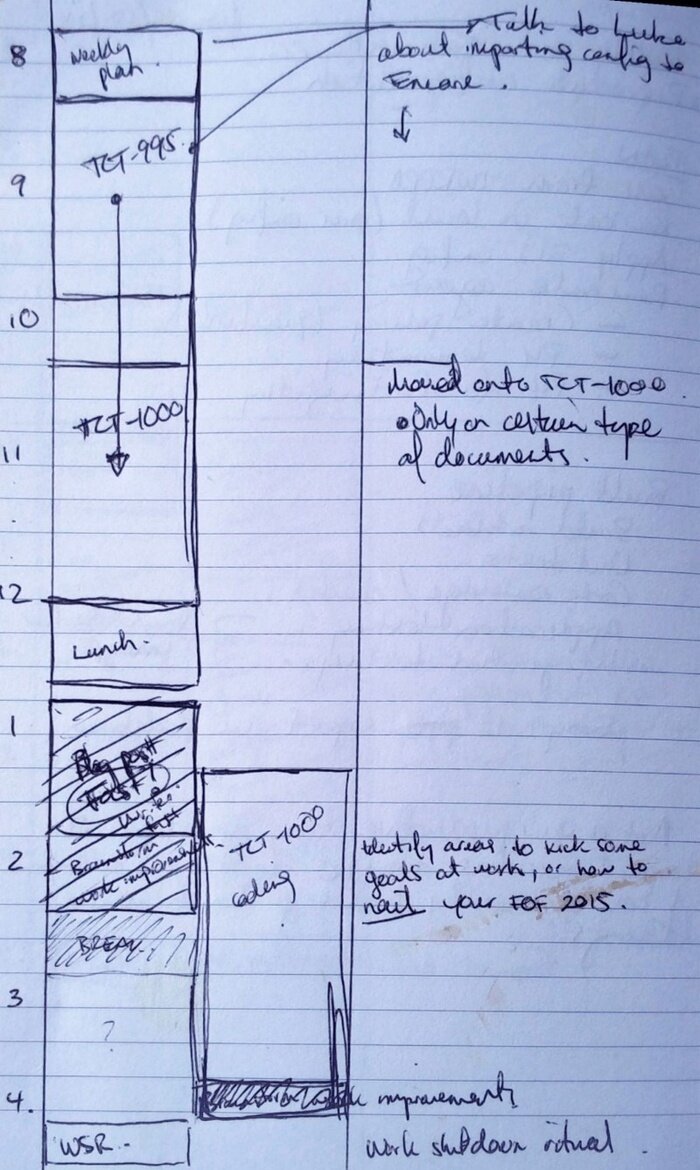 8
Weekly
plan.
Talk to Luke
about importing config to
TCT-995
9
10
Moved onto TCT-1000
TCT-1000
• Only on certain type
of documents.
11
12
Lunch.
1
Blog post
Write
first
2
TCT-1000
coding
Brainstorm
work improvements
Identify areas to kick some
goals at work, or how to
nail your FOF 2015.
BREAK
3
?
4.
improvements
WSR-
Work shutdown ritual.